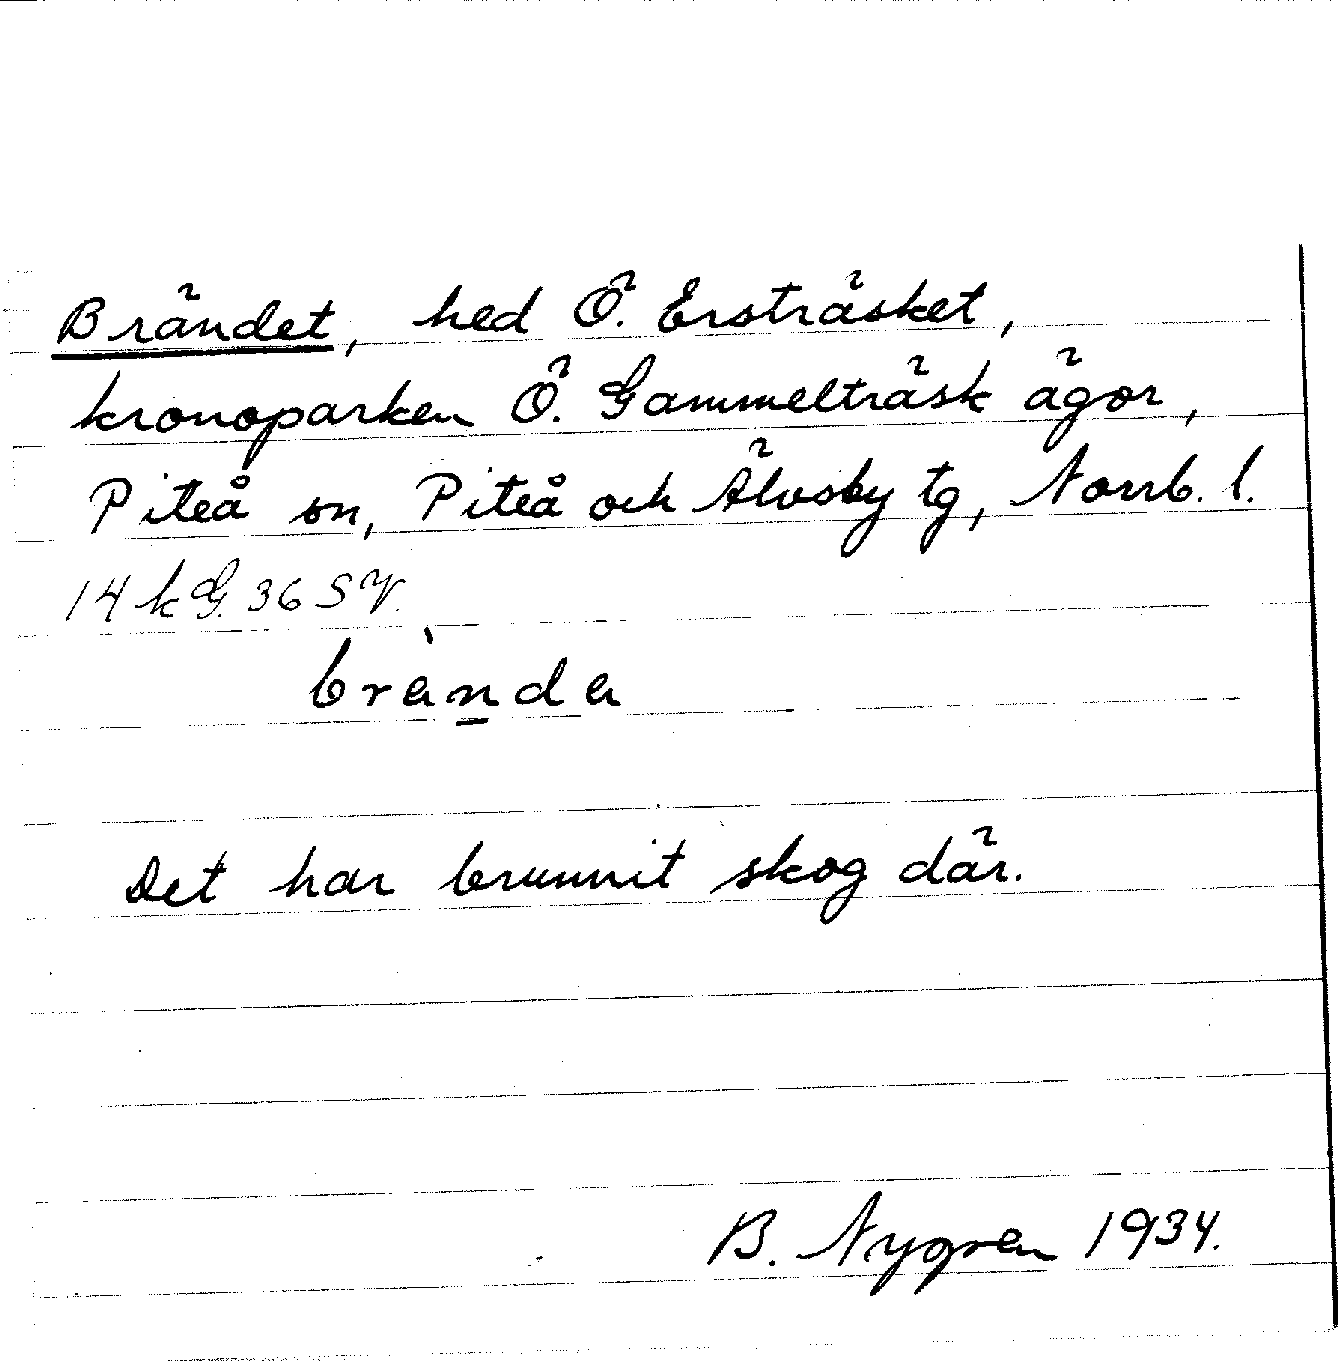 Brändet, hed Ö. Ersträsket,
kronoparken Ö. Gammelträsk ägor,
Piteå sn, Piteå och Älvsby tg, Norrb. l.
14 k G. 36 SV.
brànda
Det har brunnit skog där.
B. Nygren 1934.